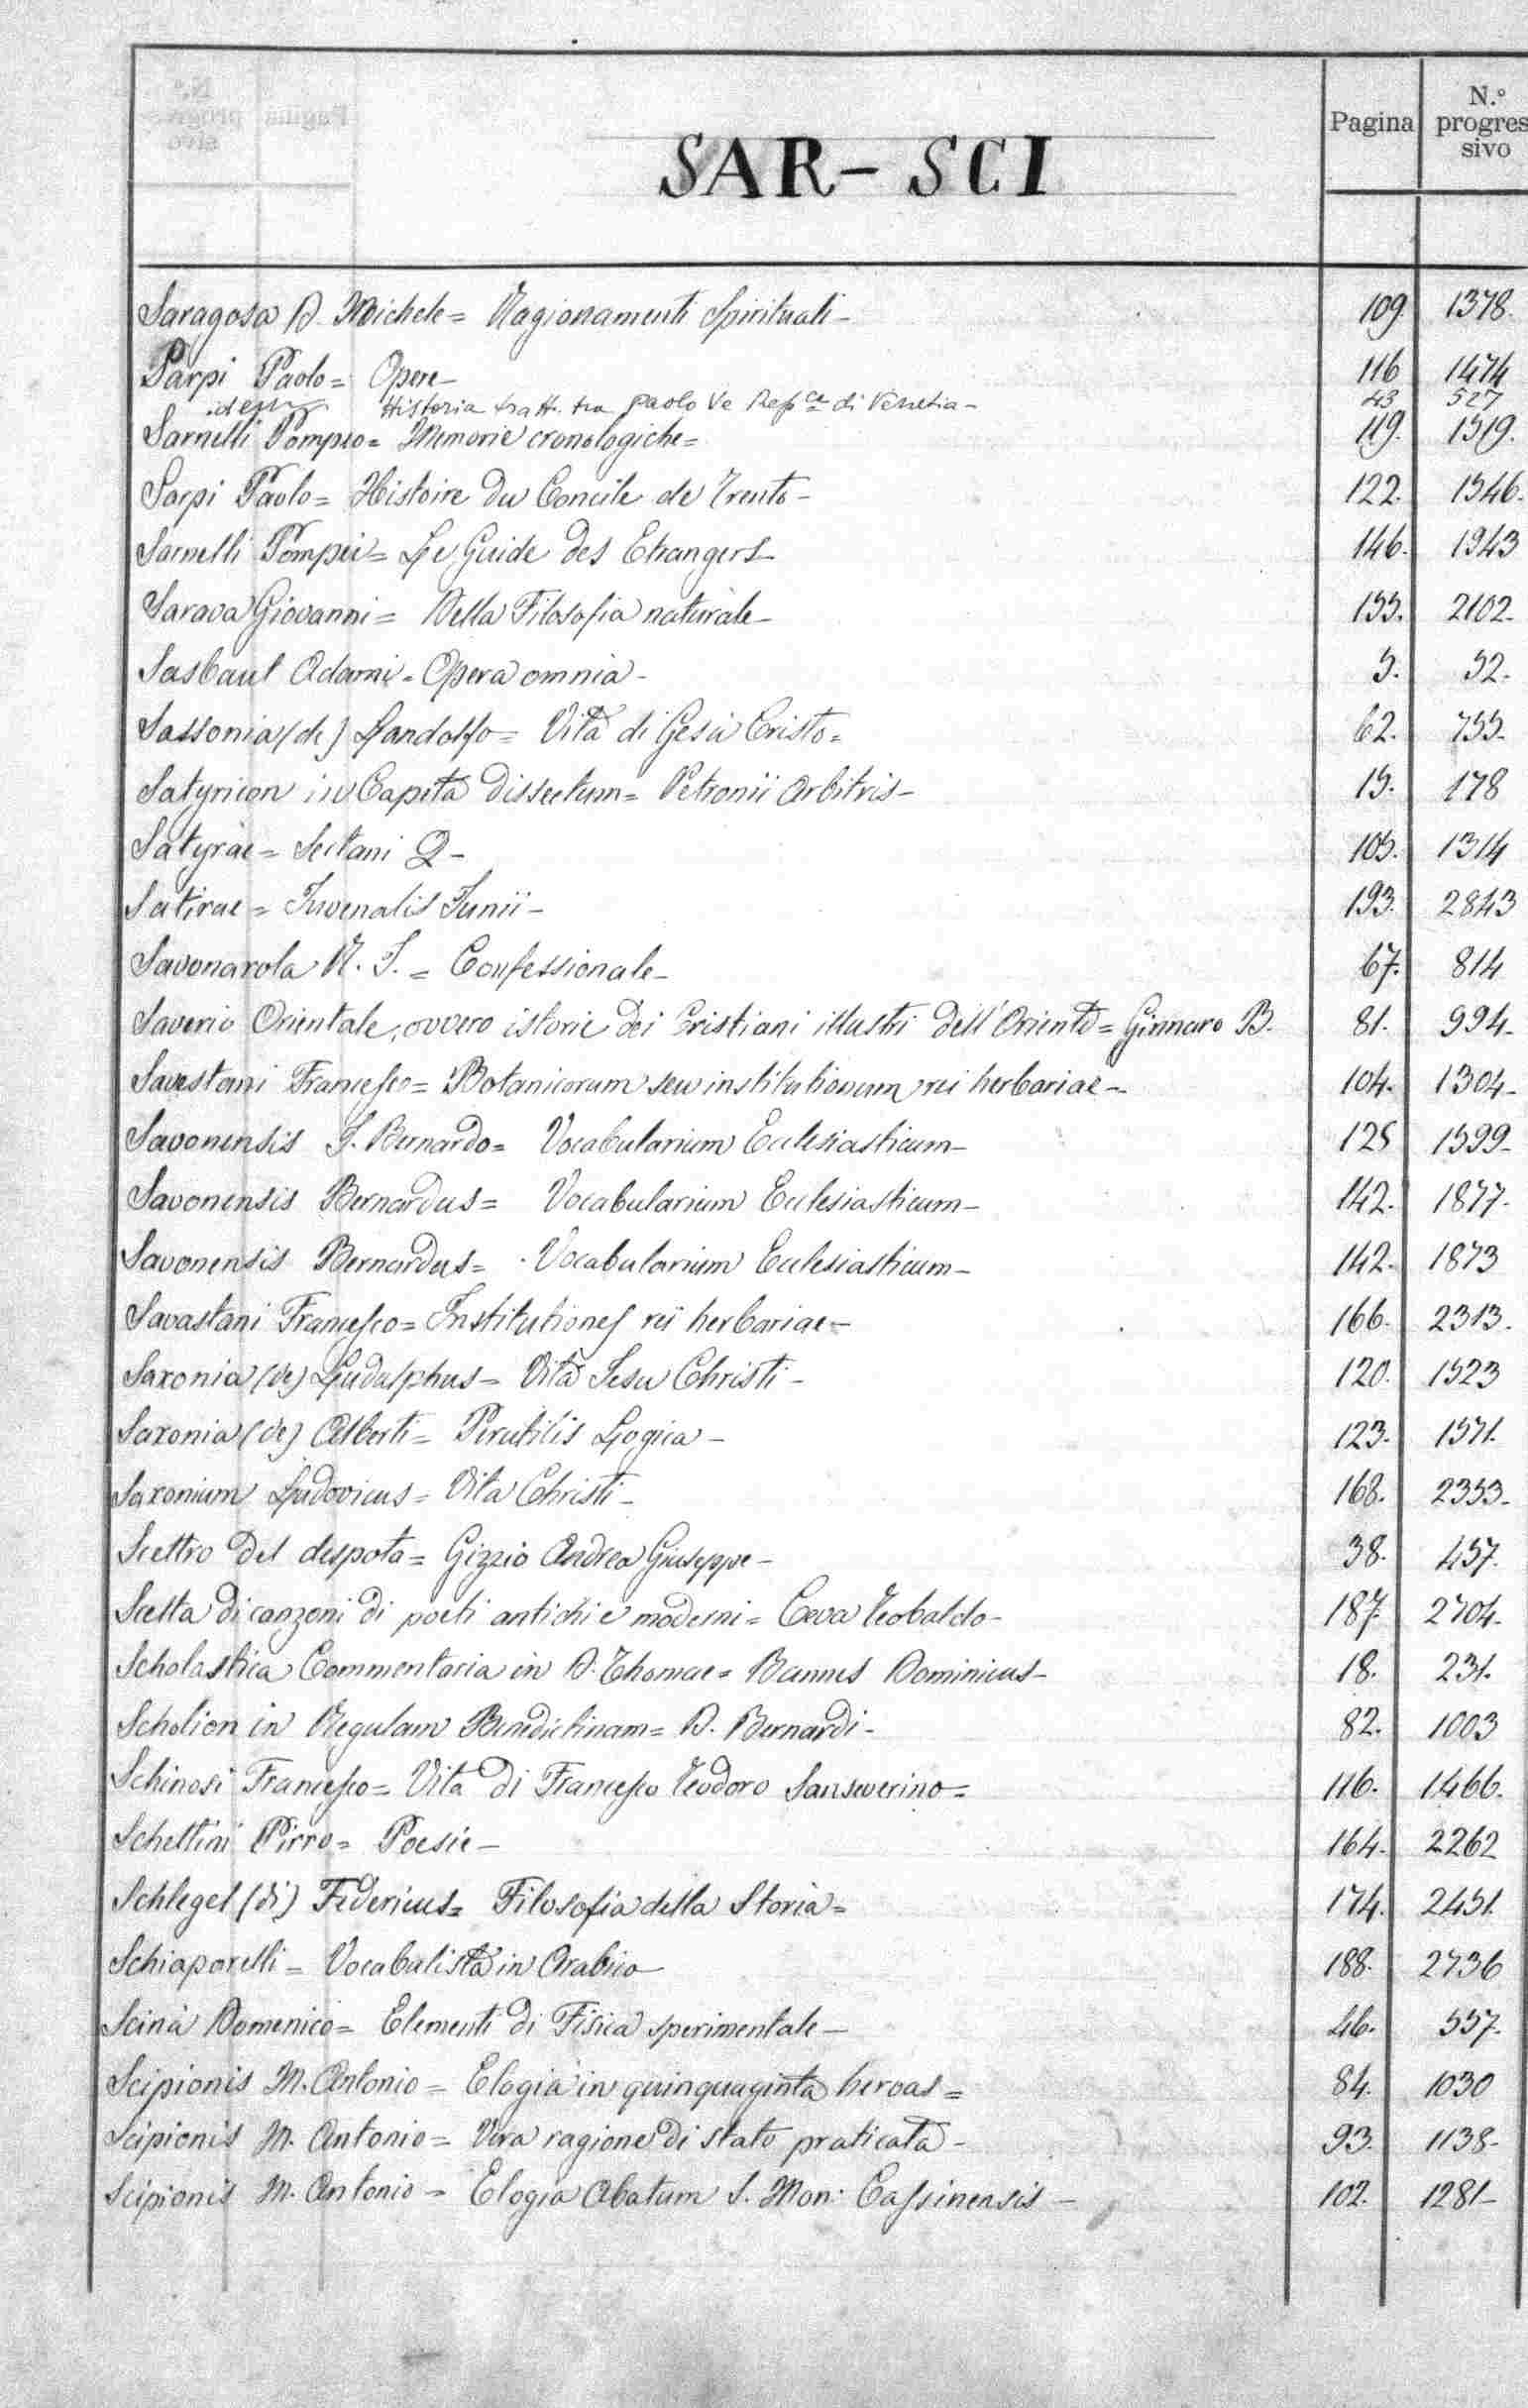 Pagina N.° progressivo
SAR - SCI
Saragosa D. Michele = Ragionamenti Spirituali - 109. 1378.
Sarpi Paolo = Opere - 116 1474
idem Historia tratt. tra Paolo V e Rep.ca di Venetia - 43 527
Sarnelli Pompeo = Memorie cronologiche = 119. 1519.
Sarpi Paolo = Histoire du Concile de Trento - 122. 1546.
Sarnelli Pompei = Le Guide des Etrangers - 146. 1943
Sarava Giovanni = Della Filosofia naturale - 155. 2102.
Sasbaut Adami - Opera omnia - 5. 52.
Sassonia (di) Landolfo = Vita di Gesù Cristo = 62. 755.
Satyricon in Capita dissectum = Petronii Arbitris - 15. 178
Satyrae = Sectani Q - 105. 1314
Satirae = Juvenalis Junii - 193. 2843
Savonarola R. J. = Confessionale - 67. 814
Saverio Orientale, ovvero istorie dei Cristiani illustri dell'Oriente = Ginnaro B. 81. 994.
Savestani Francesco = Botanicorum seu institutionum rei herbariae - 104. 1304.
Savonensis F. Bernardo = Vocabularium Ecclesiasticum - 125 1599.
Savonensis Bernardus = Vocabularium Ecclesiasticum - 142. 1877.
Savonensis Bernardus = Vocabularium Ecclesiasticum - 142. 1873
Savastani Francesco = Institutiones rei herbariae - 166. 2313.
Saxonia (de) Ludalphus = Vita Jesu Christi - 120. 1523
Saxonia (de) Alberti = Perutilis Logica - 123. 1571.
Saxonium Ludovicus = Vita Christi - 168. 2353.
Scettro del despota = Gizzio Andrea Giuseppe - 38. 457.
Scelta di canzoni di poeti antichi e moderni = Ceva Teobaldo - 187. 2704.
Scholastica Commentaria in D. Thomae = Bannes Dominicus - 18. 231.
Scholion in Regulam Benedictinam = D. Bernardi - 82. 1003
Schinosi Francesco = Vita di Francesco Teodoro Sanseverino = 116. 1466.
Schettini Pirro = Poesie - 164. 2262
Schlegel (di) Federicus = Filosofia della Storia = 174. 2451.
Schiaparelli = Vocabulista in Arabico 188. 2736
Scinà Domenico = Elementi di Fisica sperimentale - 46. 557.
Scipionis M. Antonio = Elogia in quinquaginta heroas = 84. 1030
Scipionis M. Antonio = Vera ragione di stato praticata - 93. 1138.
Scipionis M. Antonio = Elogia Abatum S. Mon: Cassinensis - 102. 1281 -